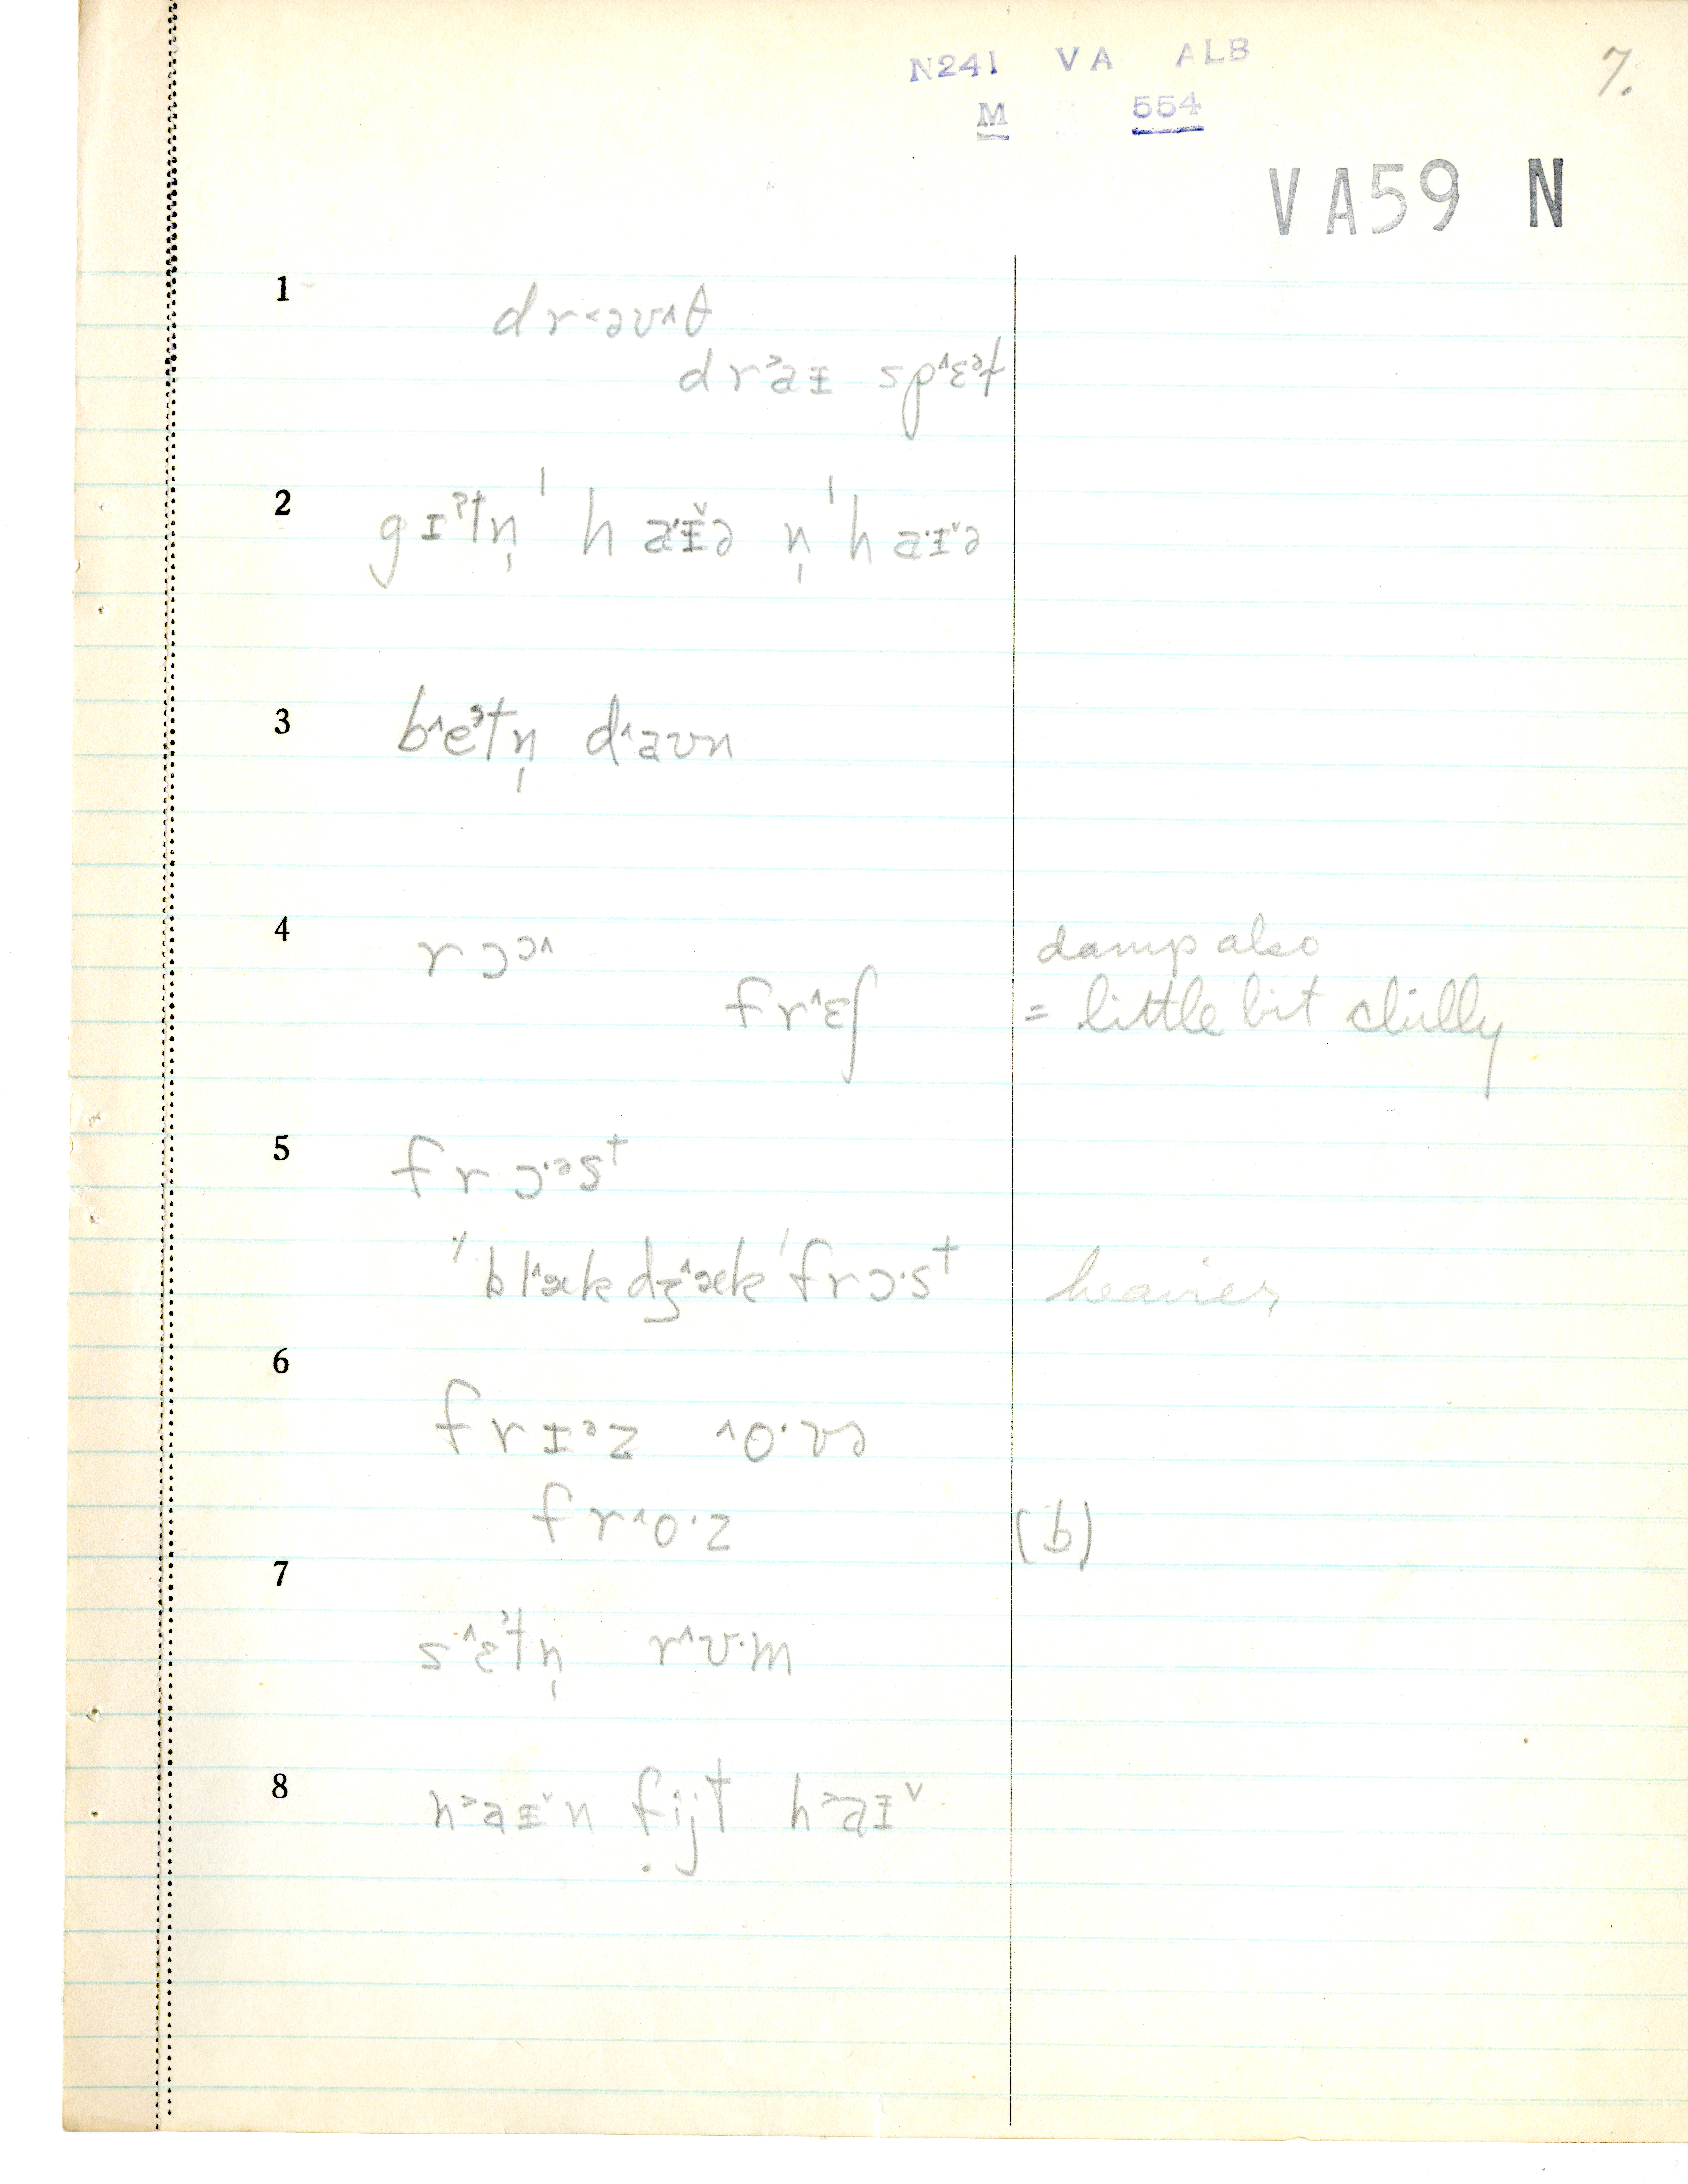 N241 VA ALB
7.
M 554
VA59 N
1
dr˂əʊ˄θ
dr˃aɪ sp˄ɛᵊt
2
gɪˀtn̩ ˈhaˑɪ˅ə n̩ ˈhaˑɪ˅ə
3
b˄eˀtn̩ d˄aʊn
4
rɔɔ˄
damp also
fr˄ɛʃ = little bit chilly
5
frɔˑəst
ˈbl˄ækdʒ˄æk ˈfrɔˑst heavier
6
frɪᵊz ˄oˑʊə
fr˄oˑz (b)
7
s˄ɛˀtn̩ r˄ʊˑm
8
n˃aɪ˅n fijt h˃aɪ˅